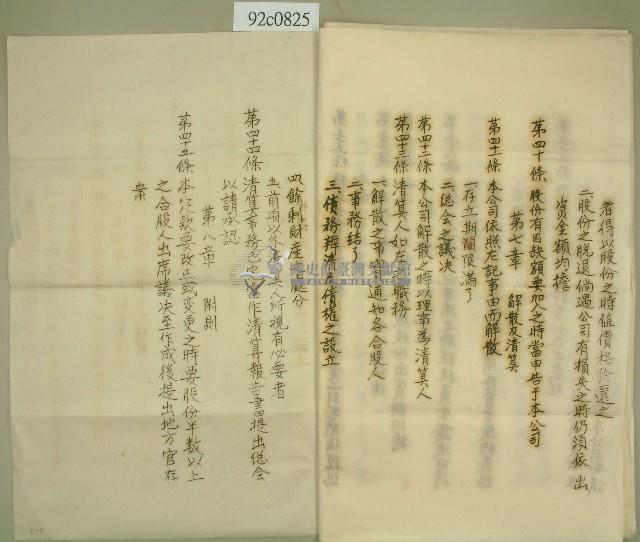 92c0825
者得以股份之時值價格給還之
二股份之脫退倘遇公司有損失之時仍須依出
資金額均擔
第四十條 股份有因缺額要加入之時當由告于本公司
第七章 解散及清算
第四十一條 本公司依照左記事由而解散
一存立期間限滿了
二總会之議決
第四十二條 本公司解散之時以理事為清算人
第四十三條 清算人如左之職務
一解散之事 通知各合股人
二事務結了
三債務辨濟 債權之設立
四餘剩財產 處分
五前項以外 人所視有必要者
第四十四條 清算事務 當作清算報告書提出總会
以請承認
第八章 附則
第四十五條 本 款要改正或变更之時要股份半数以上
之合股人出席議決至作成後提出地方官存
案
國史館臺灣文獻館
TAIWAN HISTORICA